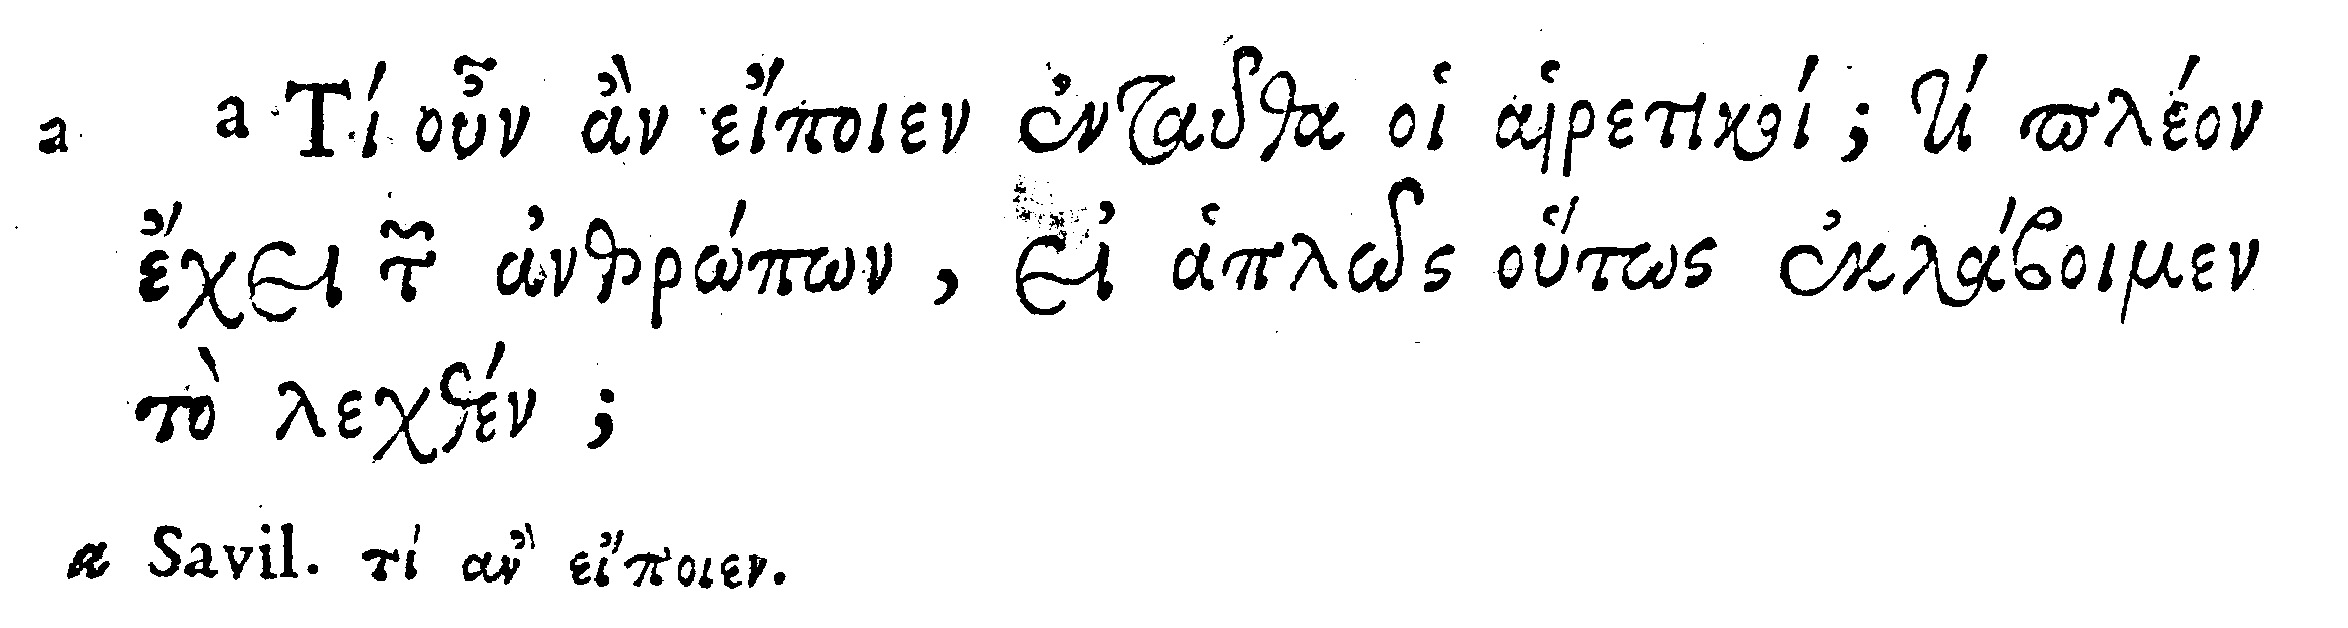 a a Τί οὖν ἂν εἴποιεν ἐνταῦθα οἱ αἱρετικοί; τί πλέον
ἔχει τῶν ἀνθρώπων, εἰ ἁπλῶς οὕτως ἐκλάβοιμεν
τὸ λεχθέν;
a Savil. τί ἂν εἴποιεν.